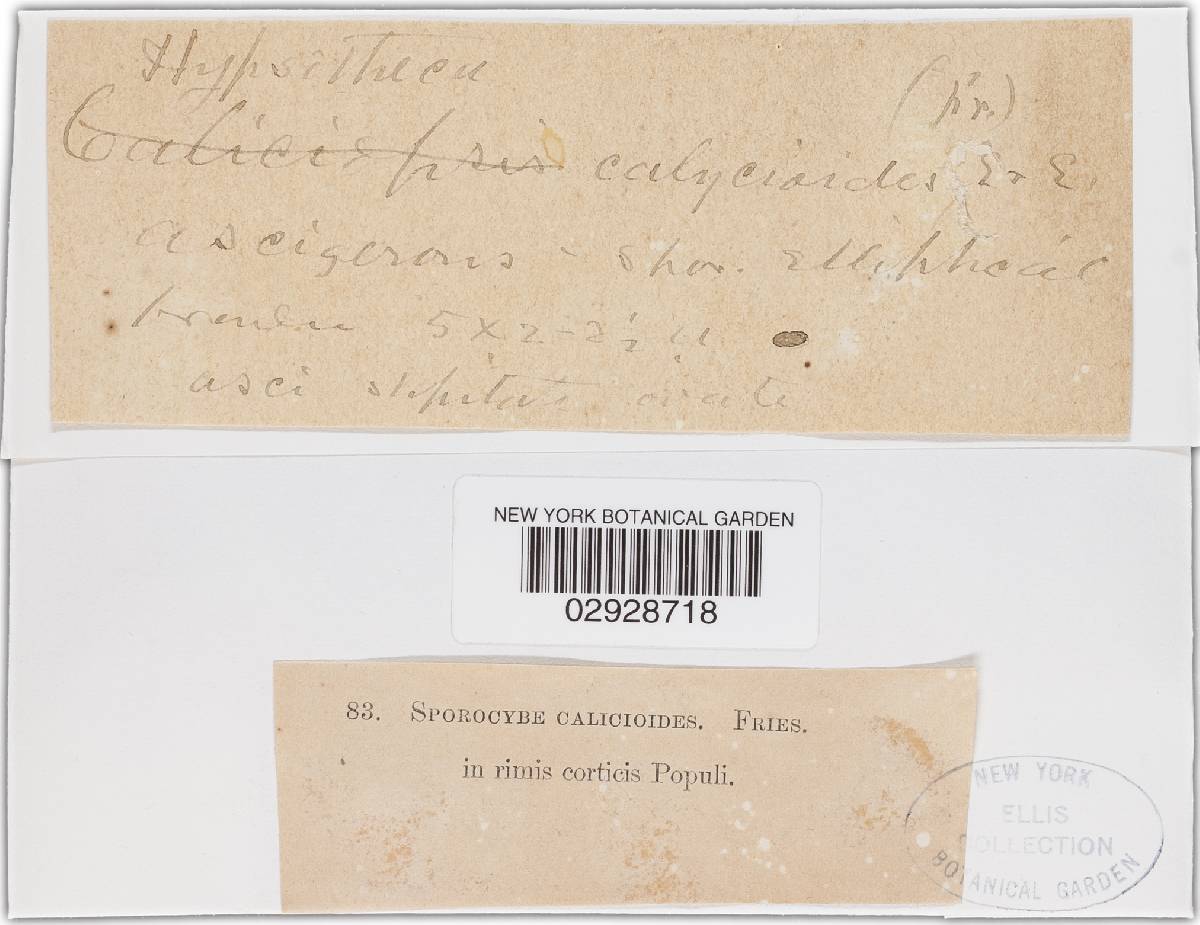 Hypsotheca
(Fr.)
Caliciopsis calycioides E & E.
ascigerous - spor. elliptical
5 x 2-2½ u
asci stipitate ovate
NEW YORK BOTANICAL GARDEN
02928718
83. SPOROCYBE CALICIOIDES. FRIES.
in rimis corticis Populi.
NEW YORK
ELLIS
COLLECTION
BOTANICAL GARDEN